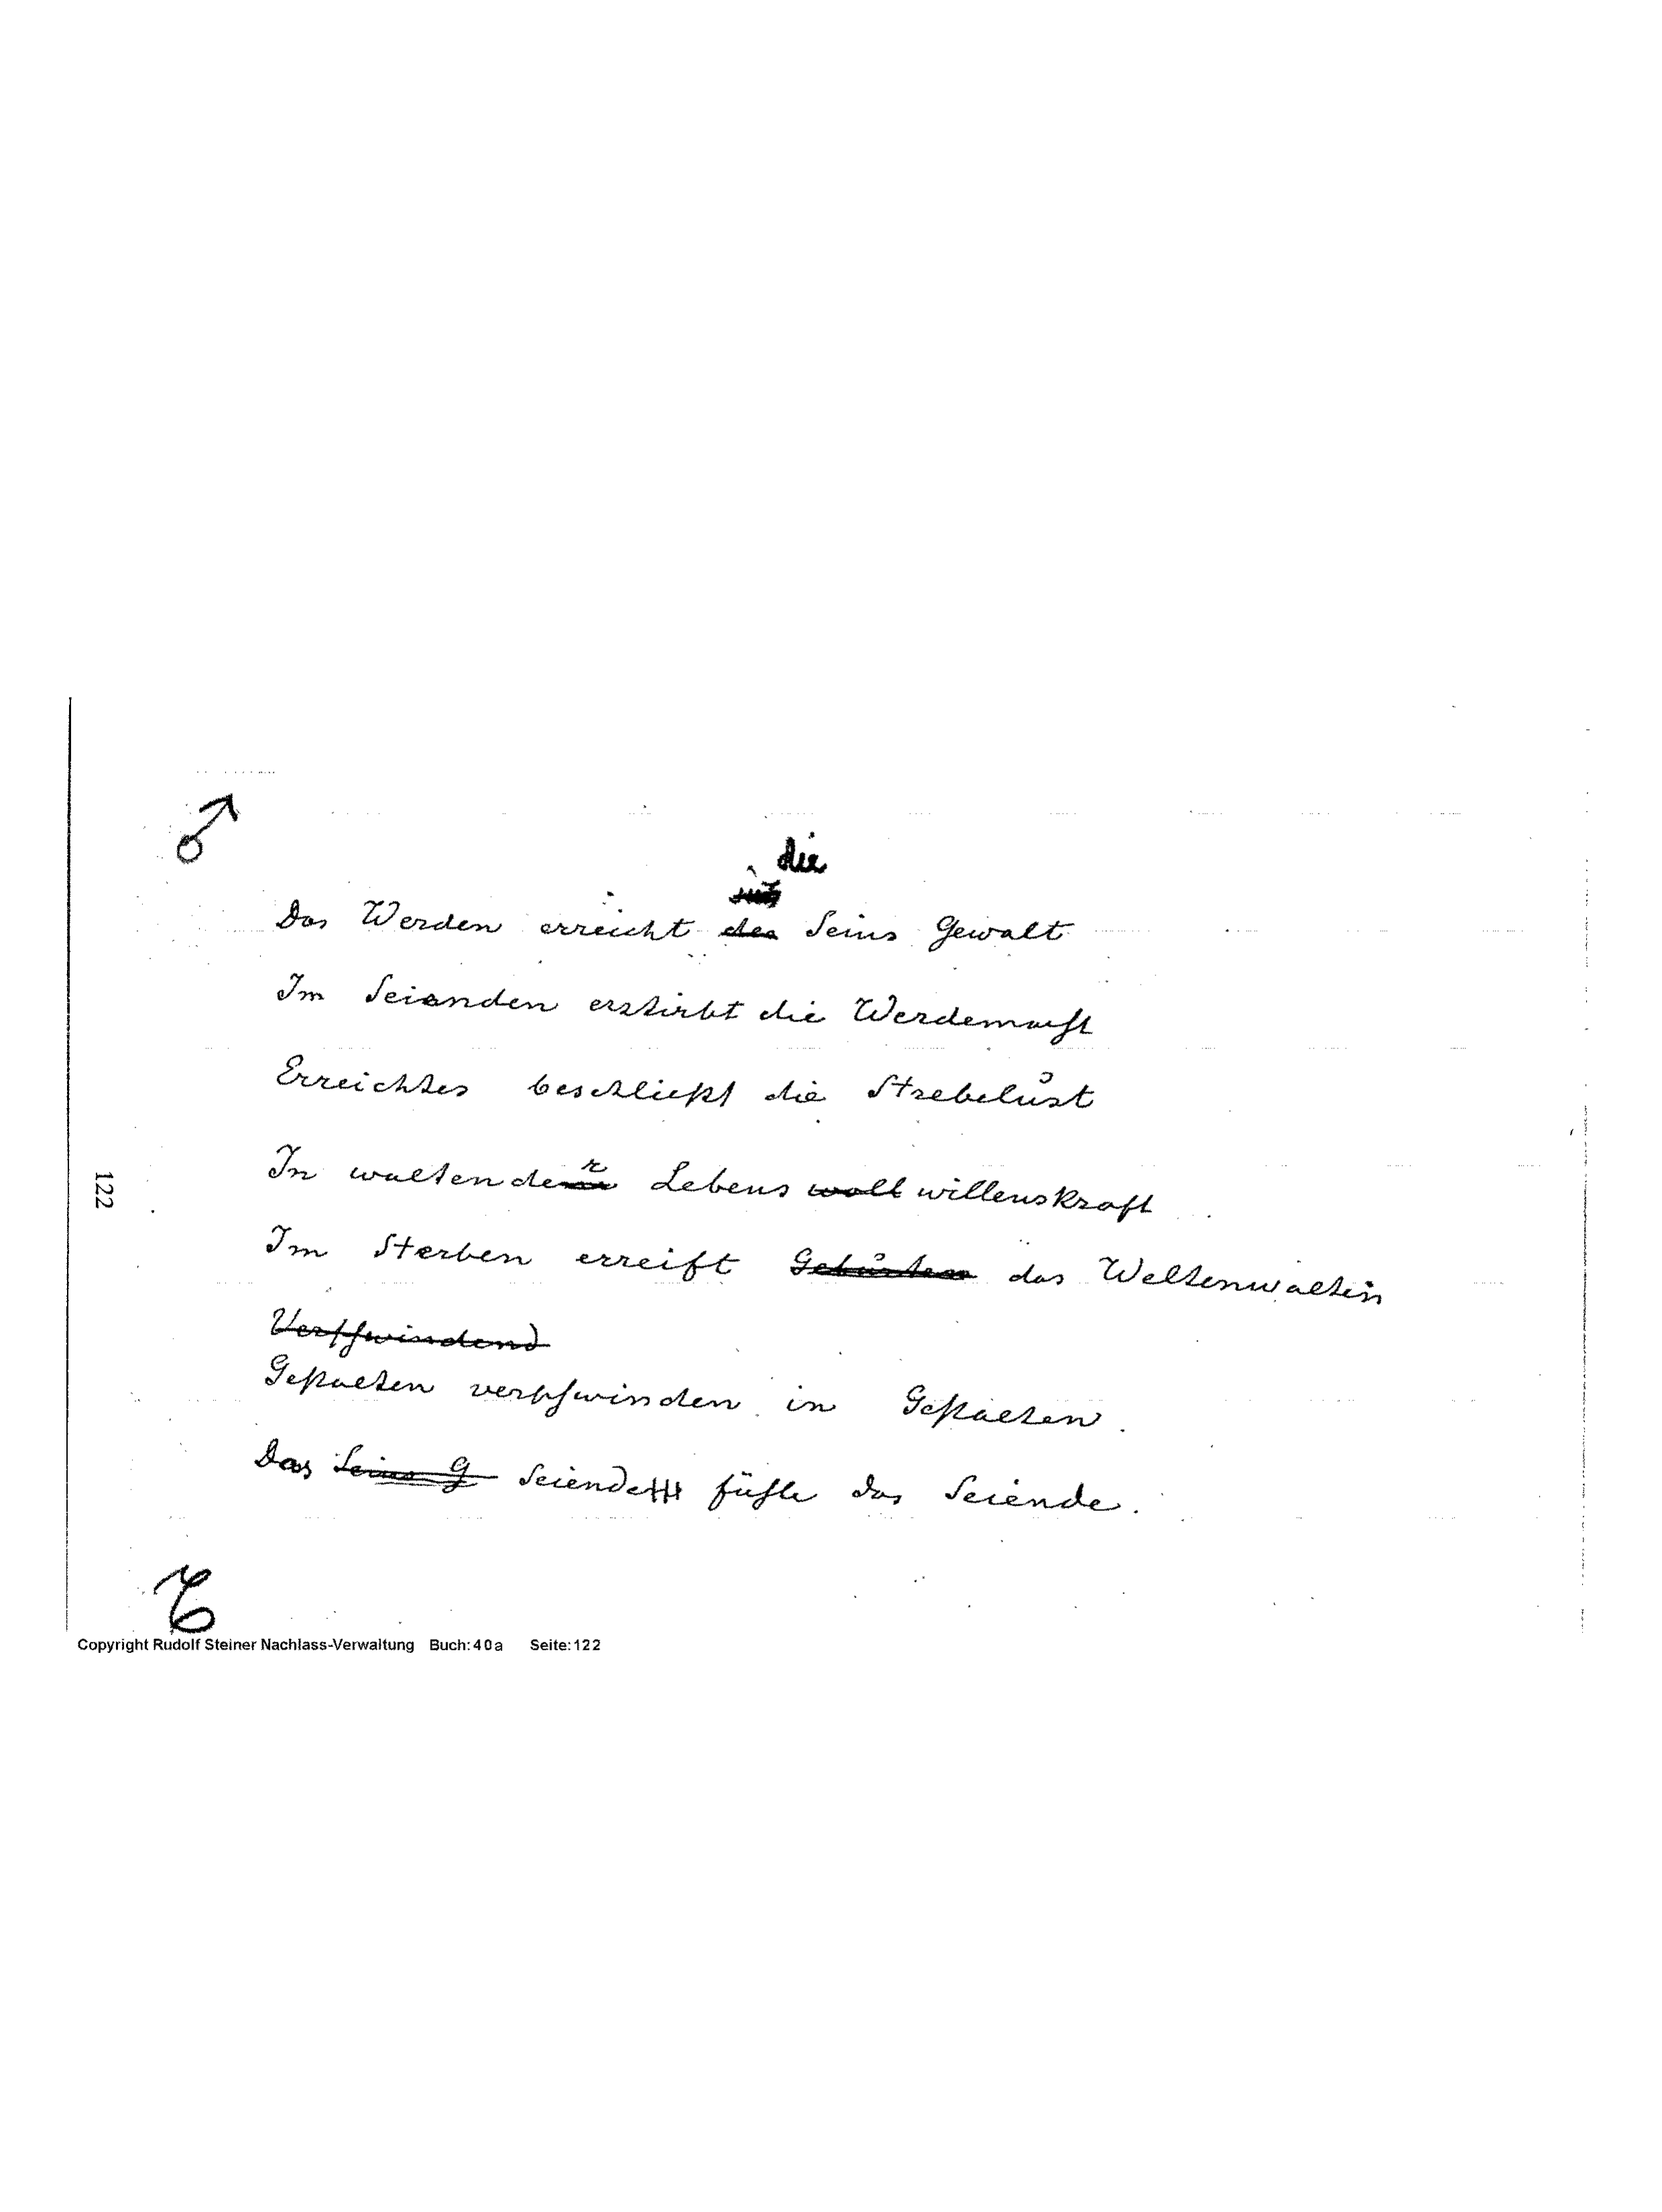 ♂
die
Das Werden erreicht des Seins Gewalt
Im Seienden erstirbt die Werdemacht
Erreichtes beschließt die Strebelust
r
In waltendem Lebens woll willenskraft
Im Sterben erreift Geburten das Weltenwalten
Verschwindend
Gestalten verschwinden in Gestalten.
Das Seins G Seiende fühle das Seiende.
122
Copyright Rudolf Steiner Nachlass-Verwaltung Buch:40a Seite:122